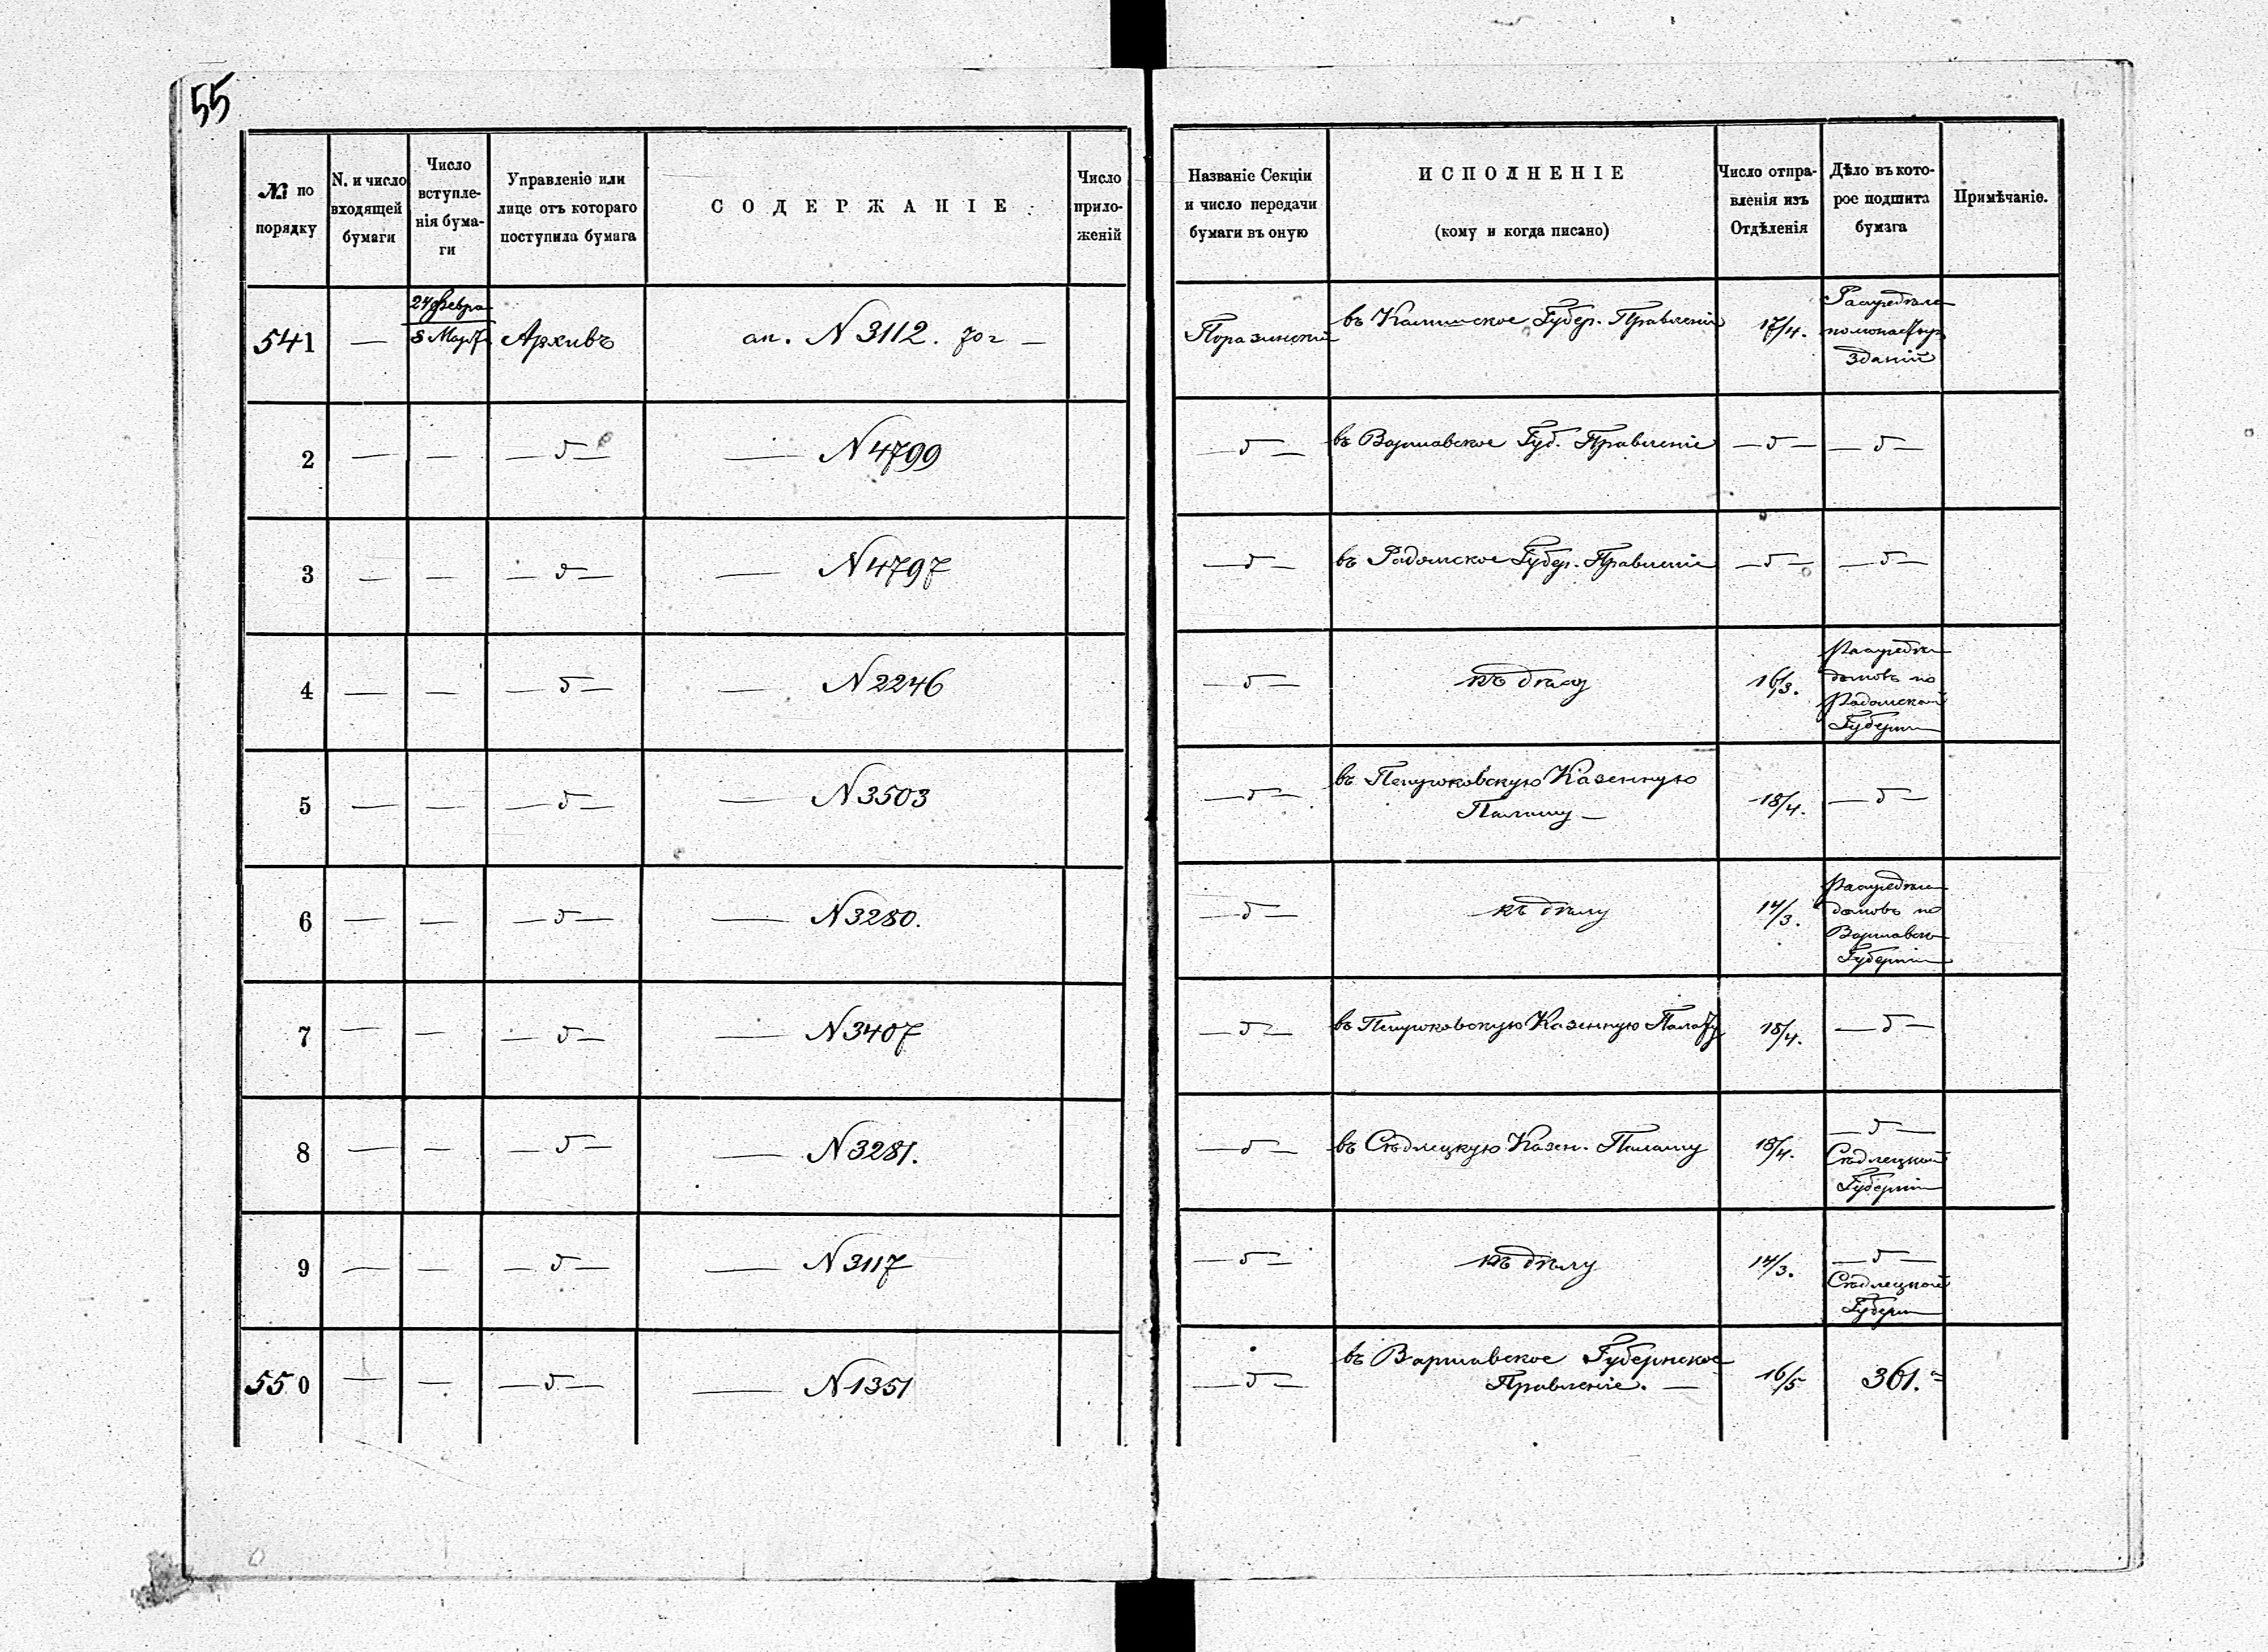 55
№ по порядку
N. и число входящей бумаги
Число вступленія бумаги
Управленіе или лице отъ котораго поступила бумага
СОДЕРЖАНІЕ
Число приложеній
Названіе Секціи и число передачи бумаги въ оную
ИСПОЛНЕНІЕ
(кому и когда писано)
Число отправленія изъ Отдѣленія
Дѣло въ которое подшита бумага
Примѣчаніе.
541 — 24 Февра / 8 Март Архивъ N 3112. 70 г — въ Калишское Губер. Правленіе 17/4. зданій
2 — — — δ — — N 4799 — δ — въ Варшавское Губ. Правленіе — δ — — δ —
3 — — — δ — — N 4797 — δ — въ Радомское Губер. Правленіе — δ — — δ —
4 — — — δ — — N 2246 — δ — къ дѣлу 16/3. домовъ по Радомской Губерніи
5 — — — δ — — N 3503 — δ — въ Петроковскую Казенную Палату — 18/4. — δ —
6 — — — δ — — N 3280. — δ — къ дѣлу 14/3. домовъ по Варшавск Губерніи
7 — — — δ — — N 3407 — δ — въ Петроковскую Казенную Палату 18/4. — δ —
8 — — — δ — — N 3281. — δ — въ Сѣдлецкую Казен. Палату 18/4. — δ — Сѣдлецкой Губерніи
9 — — — δ — — N 3117 — δ — къ дѣлу 14/3. — δ — Сѣдлецкой Губерн
550 — — — δ — — N 1351 — δ — въ Варшавское Губернское Правленіе. — 16/5 361.